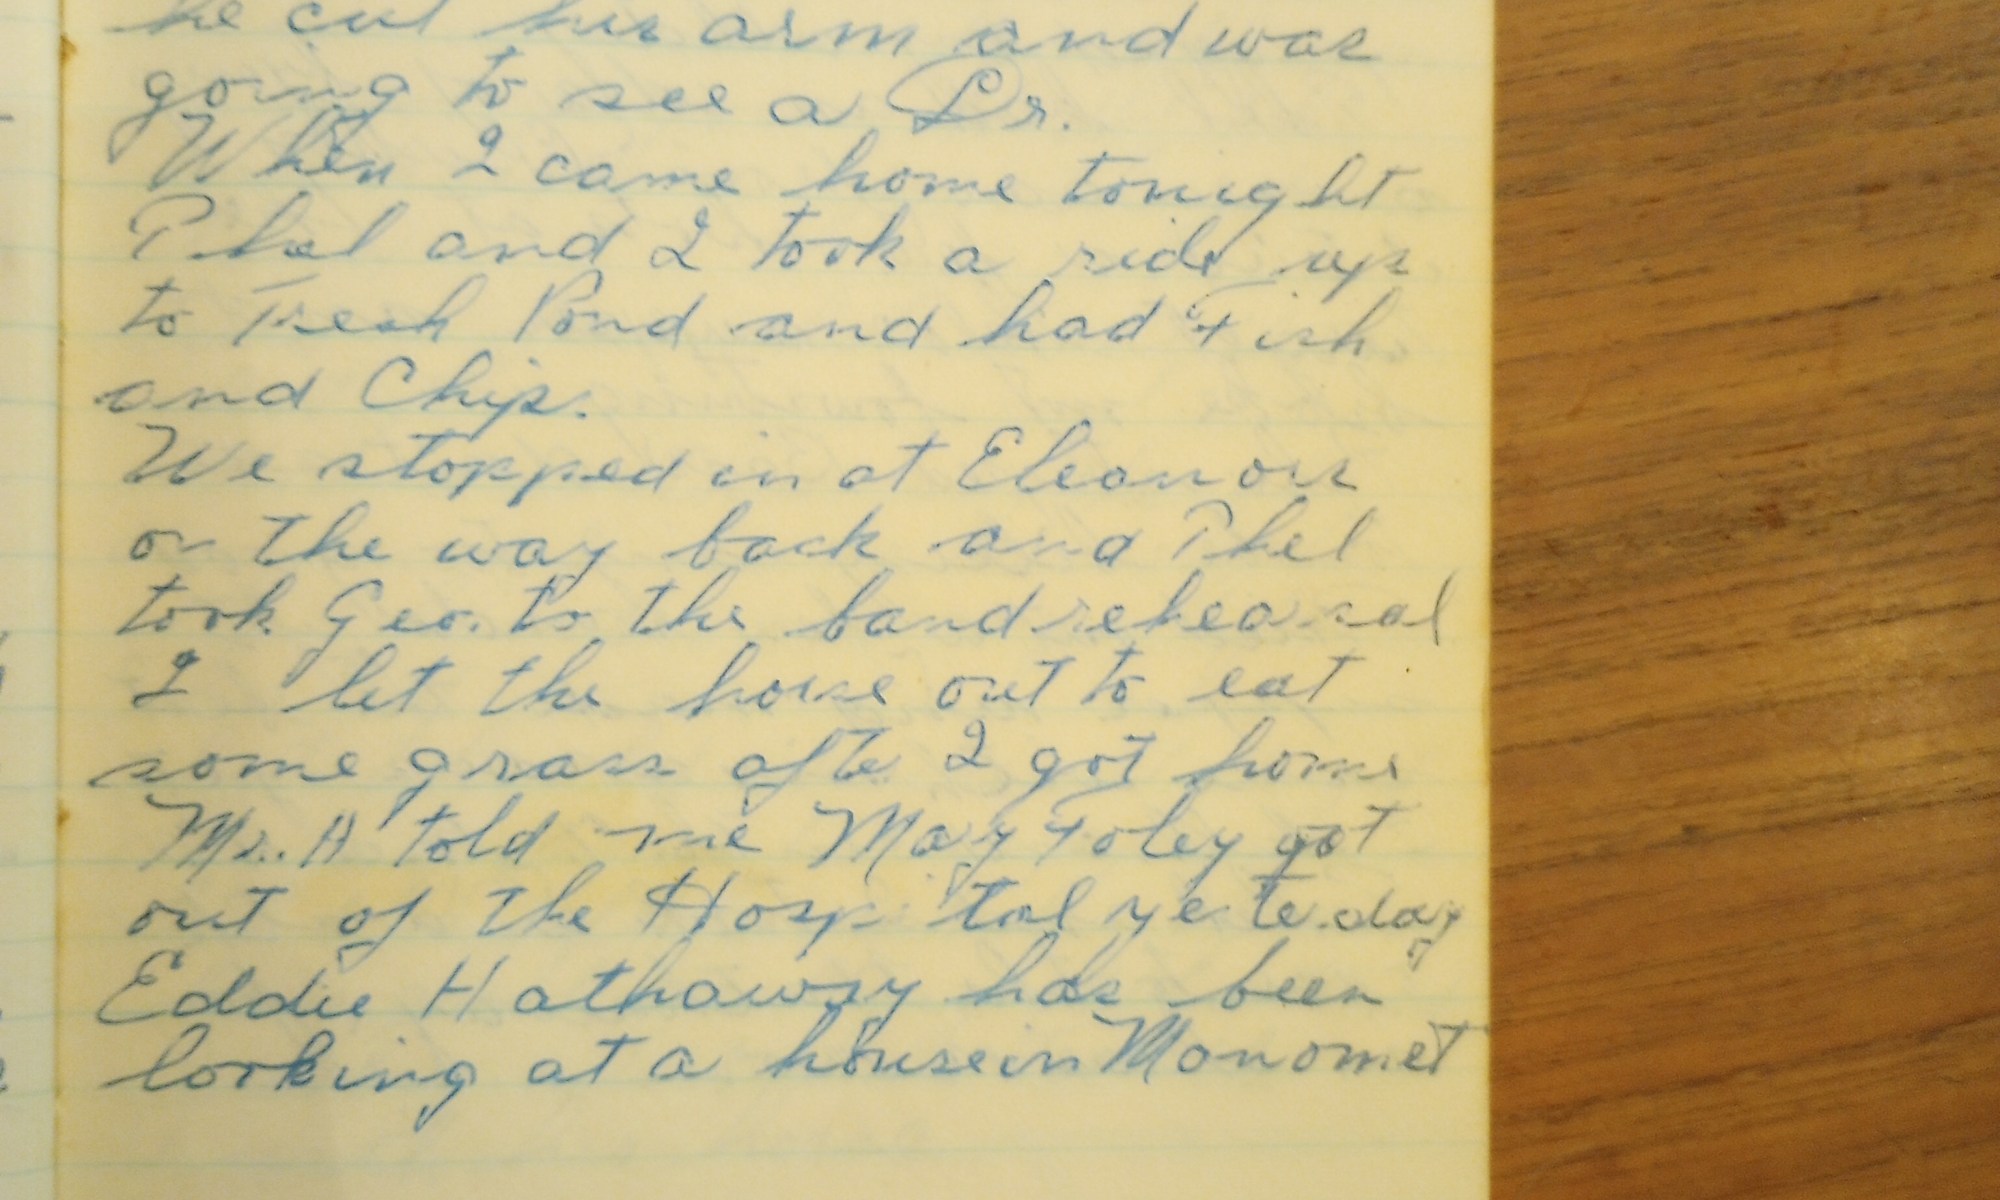 he cut his arm and was
going to see a Dr.
When I came home tonight
Phel and I took a ride up
to Fresh Pond and had Fish
and Chips.
We stopped in at Eleanors
on the way back and Phel
took Geo. to the band rehearsal
I let the horse out to eat
some grass after I got home
Mr. H told me May Foley got
out of the Hospital yesterday
Eddie Hathaway has been
looking at a house in Monomet